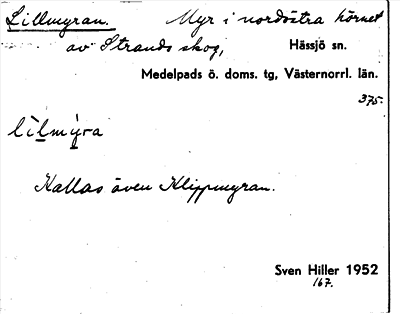 Lillmyran. Myr i nordöstra hörnet
av Strands skog, Hässjö sn.
Medelpads ö. doms. tg, Västernorrl. län.
375.
lìlmy̆ra
Kallas även Klippmyran.
Sven Hiller 1952
167.